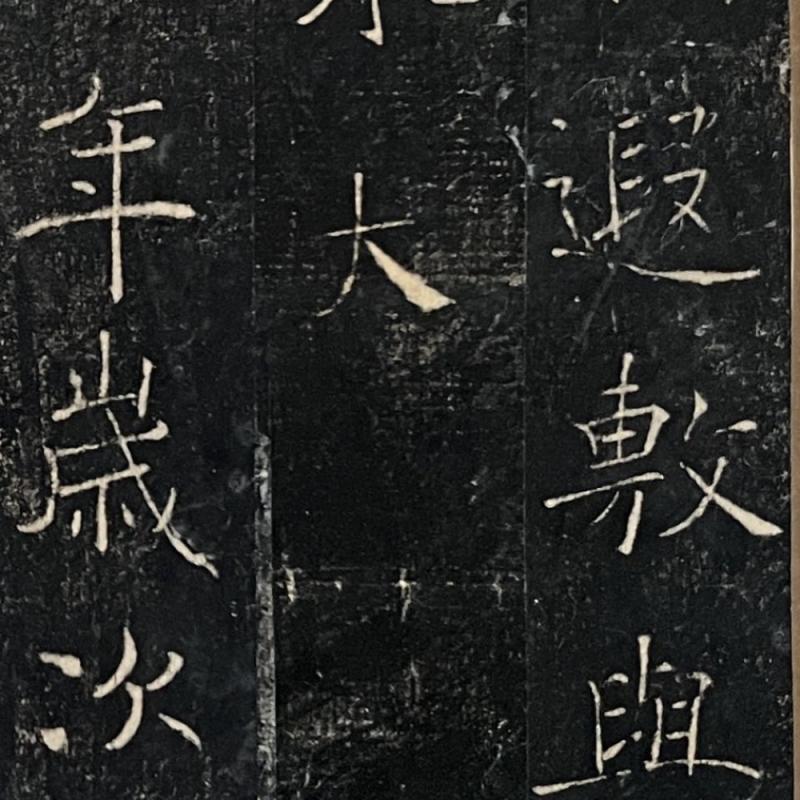 遐敷
大
年歲次